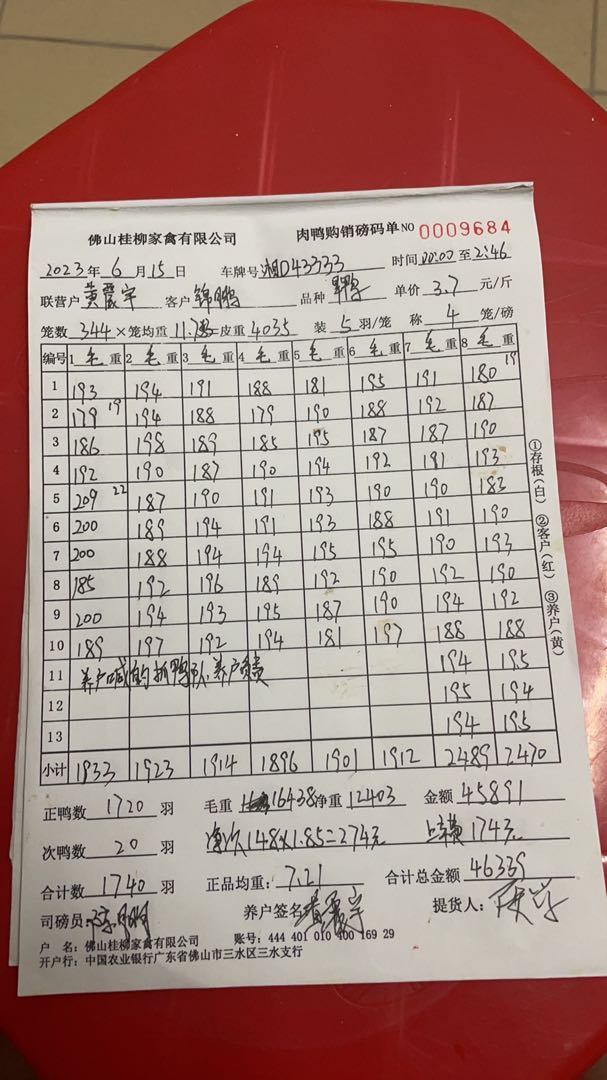 佛山桂柳家禽有限公司 肉鸭购销磅码单 NO 0009684
2023年 6 月 15 日 车牌号 湘D43333 时间 20:00 至 2:46
联营户 黄震宇 客户 锦鹏 品种 单价 3.7 元/斤
笼数 344 × 笼均重 11.73 = 皮重 4035 装 5 羽/笼 称 4 笼/磅
编号 1 毛 重 2 毛 重 3 毛 重 4 毛 重 5 毛 重 6 毛 重 7 毛 重 8 毛 重
1 193 194 191 188 181 195 191 180 19
2 179 19 194 188 179 190 188 192 187
3 186 198 189 185 195 187 187 190
4 192 190 187 190 194 192 181 193
5 209 22 187 190 191 193 190 190 183
6 200 189 194 191 193 188 191 190
7 200 188 194 194 195 195 190 193
8 185 192 196 189 192 190 192 190
9 200 194 193 195 187 190 194 192
10 189 197 192 194 181 197 188 188
11 养户喊的抓鸭队,养户负责 194 195
12 195 194
13 194 195
小计 1933 1923 1914 1896 1901 1912 2489 2470
①存根(白) ②客户(红) ③养户(黄)
正鸭数 1720 羽 毛重 16438 净重 12403 金额 45891
次鸭数 20 羽 净次148×1.85=274元 174元
合计数 1740 羽 正品均重: 7.21 合计总金额 46339
司磅员: 养户签名 黄震宇 提货人:
户 名: 佛山桂柳家禽有限公司 账号: 444 401 010 400 169 29
开户行: 中国农业银行广东省佛山市三水区三水支行